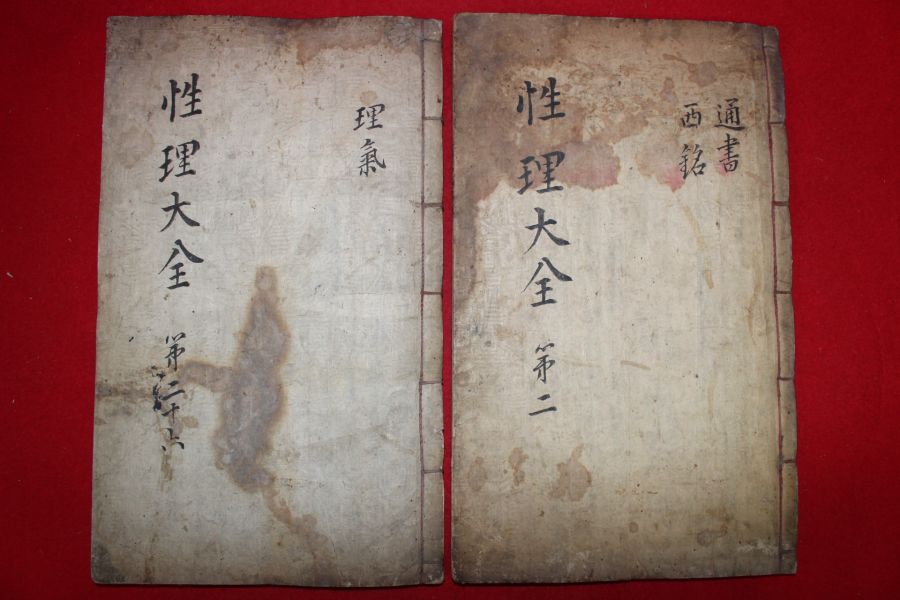 理氣
性理大全 第二十六
通書
西銘
性理大全 第二